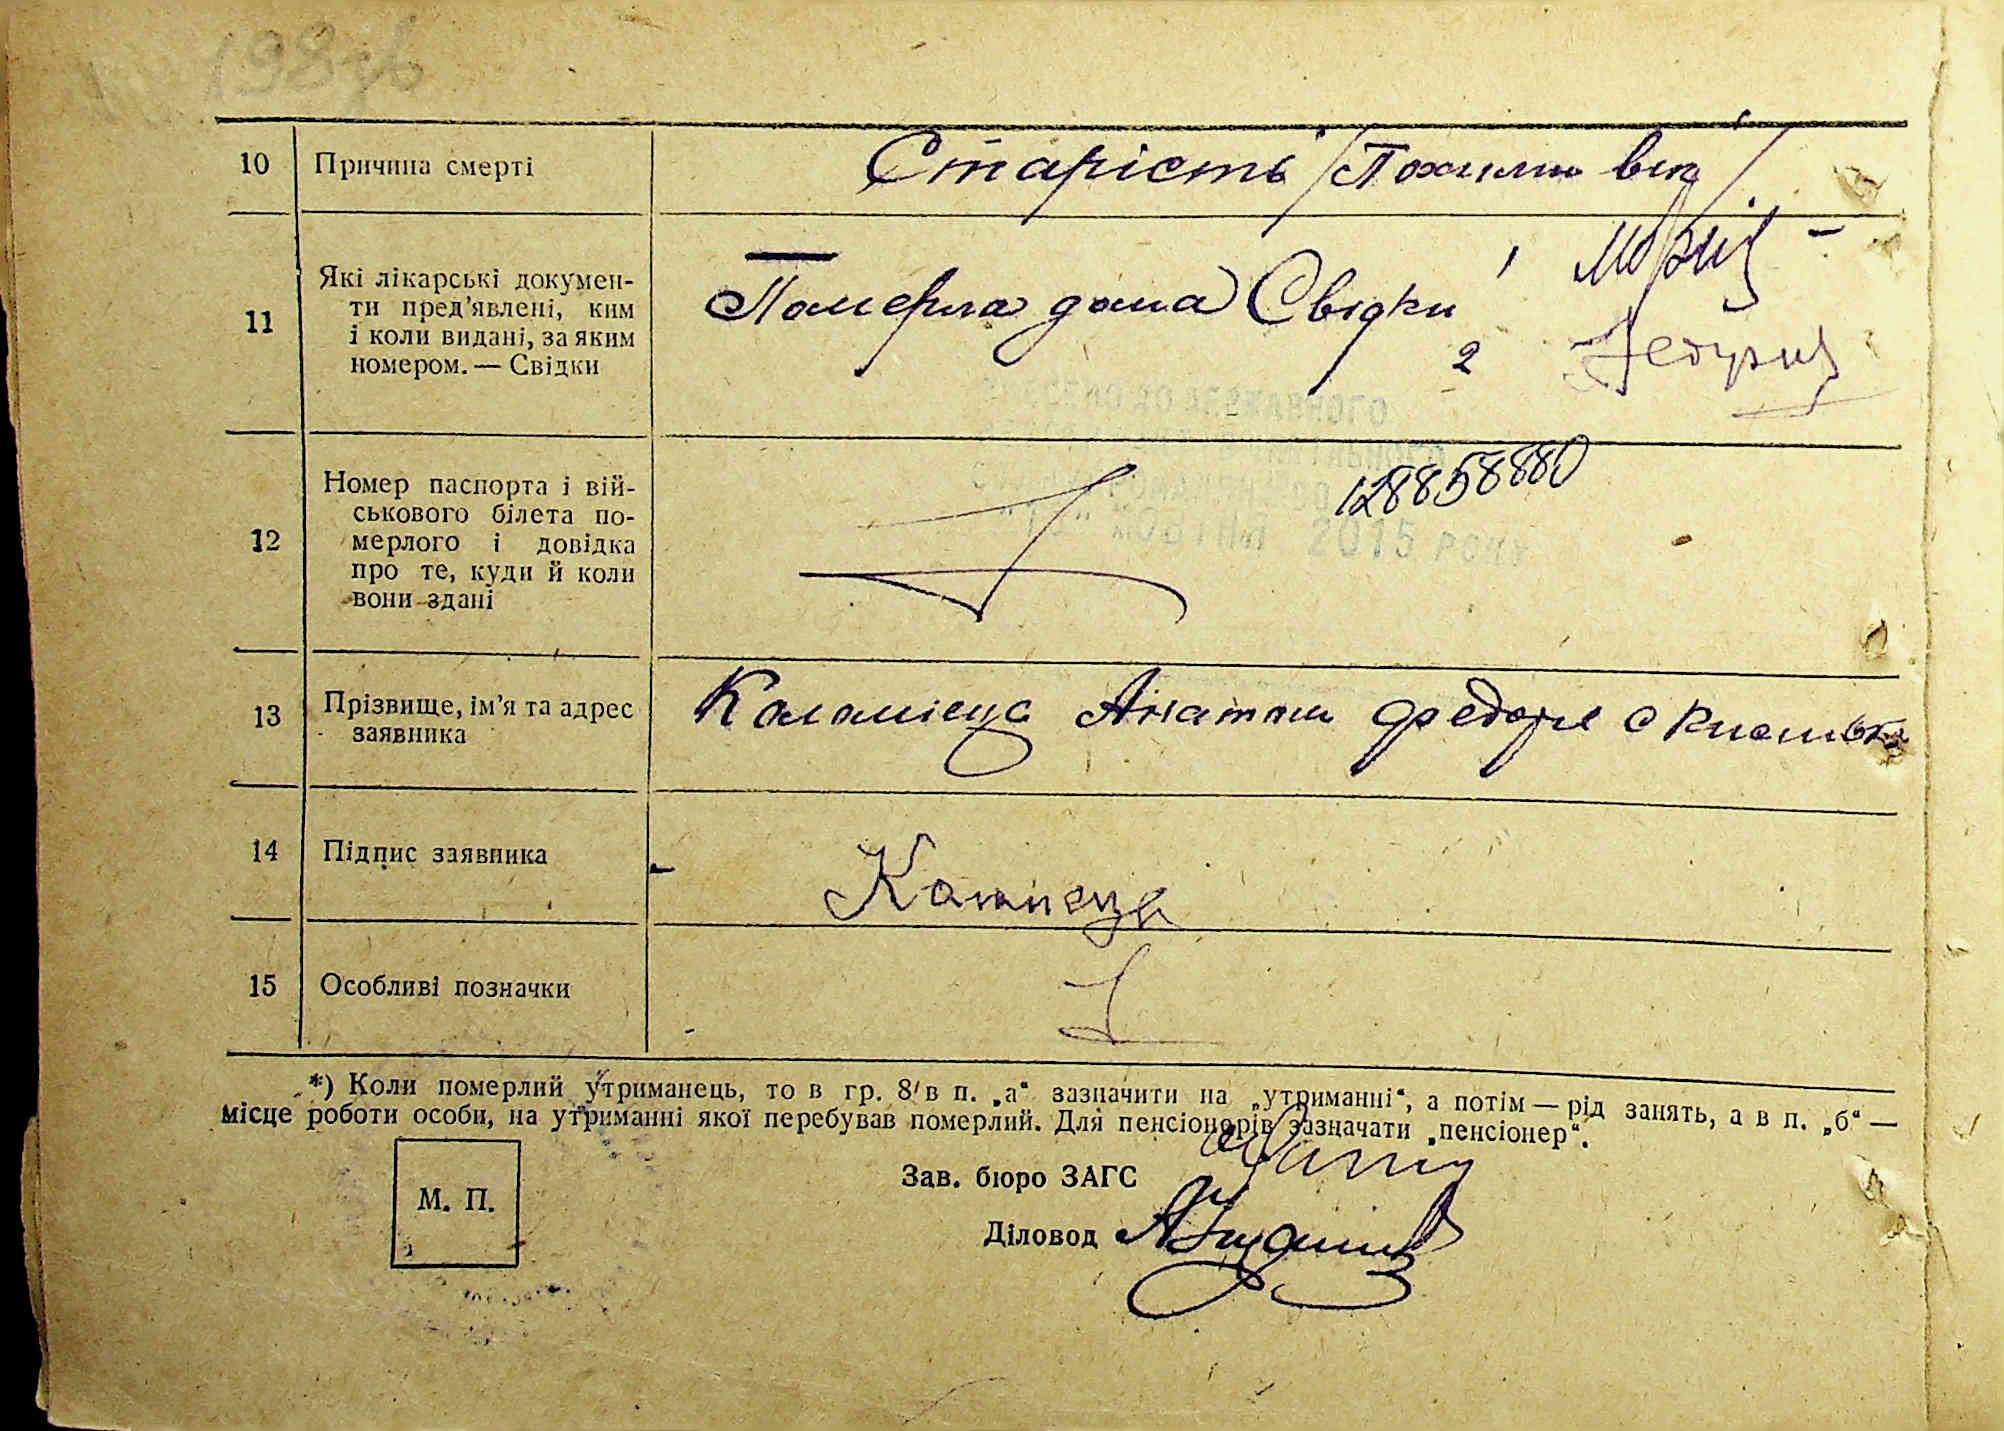 198 зв
10 Причина смерті Старість /Похилий вік/
11 Які лікарські докумен-
ти пред'явлені, ким
і коли видані, за яким
номером. — Свідки
Померла дома Свідки 1
2
12 Номер паспорта і вій-
ськового білета по-
мерлого і довідка
про те, куди й коли
вони здані
128858880
ДЕРЖАВНОГО
2015 РОКУ
13 Прізвище, ім'я та адрес
заявника
Коломієць Анатолій Федорів с
14 Підпис заявника
15 Особливі позначки
*) Коли померлий утриманець, то в гр. 8 в п. „а“ зазначити на „утриманні“, а потім — рід занять, а в п. „б“ —
місце роботи особи, на утриманні якої перебував померлий. Для пенсіонерів зазначати „пенсіонер“.
М. П.
Зав. бюро ЗАГС
Діловод